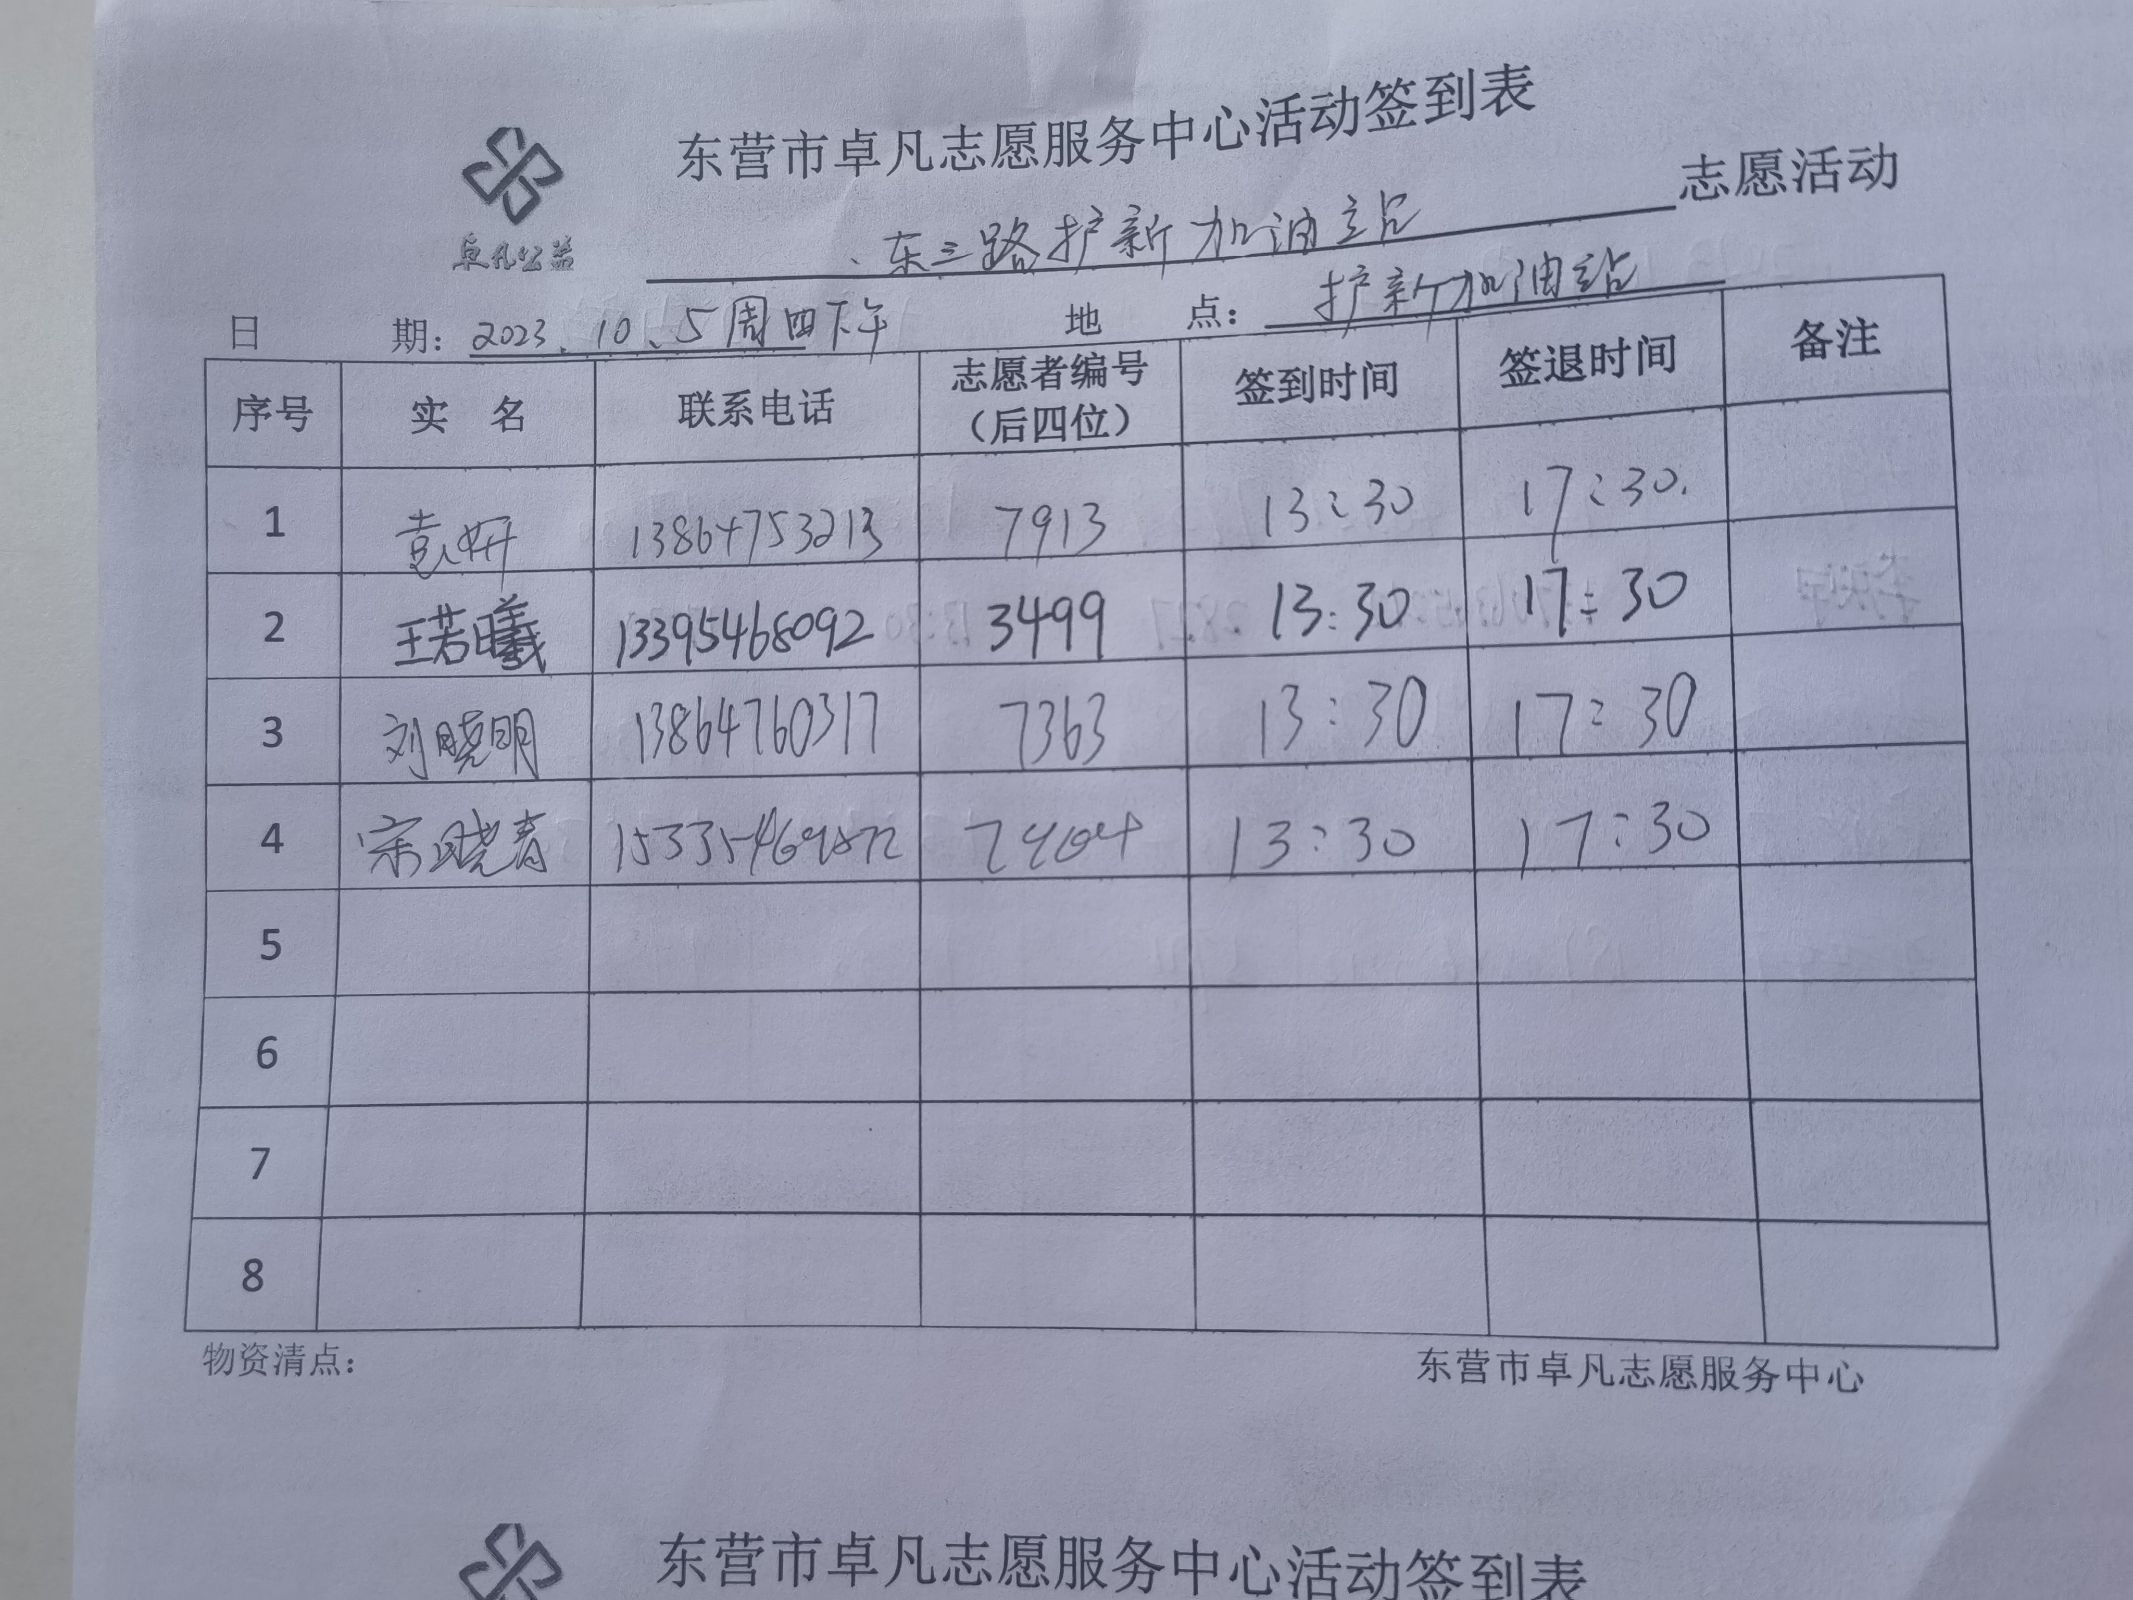 东营市卓凡志愿服务中心活动签到表
卓凡公益
东三路护新加油站 志愿活动
日 期：2023.10.5周四下午 地 点：护新加油站
序号 实 名 联系电话 志愿者编号（后四位） 签到时间 签退时间 备注
1 袁妍 13864753213 7913 13:30 17:30.
2 王若曦 13395468092 3499 13:30 17:30
3 刘晓明 13864760317 7363 13:30 17:30
4 宋晓春 13:30 17:30
5
6
7
8
物资清点： 东营市卓凡志愿服务中心
东营市卓凡志愿服务中心活动签到表